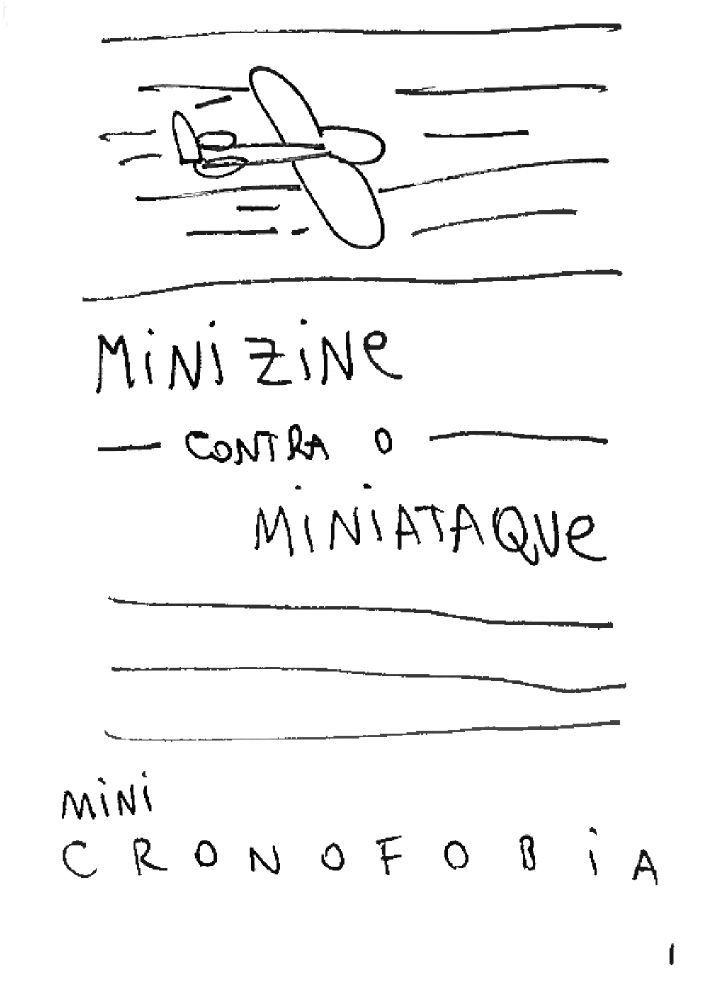 MiNi ZiNe
CONTRA O
MiNiATAQUe
MiNi
CRONOFOBiA
1